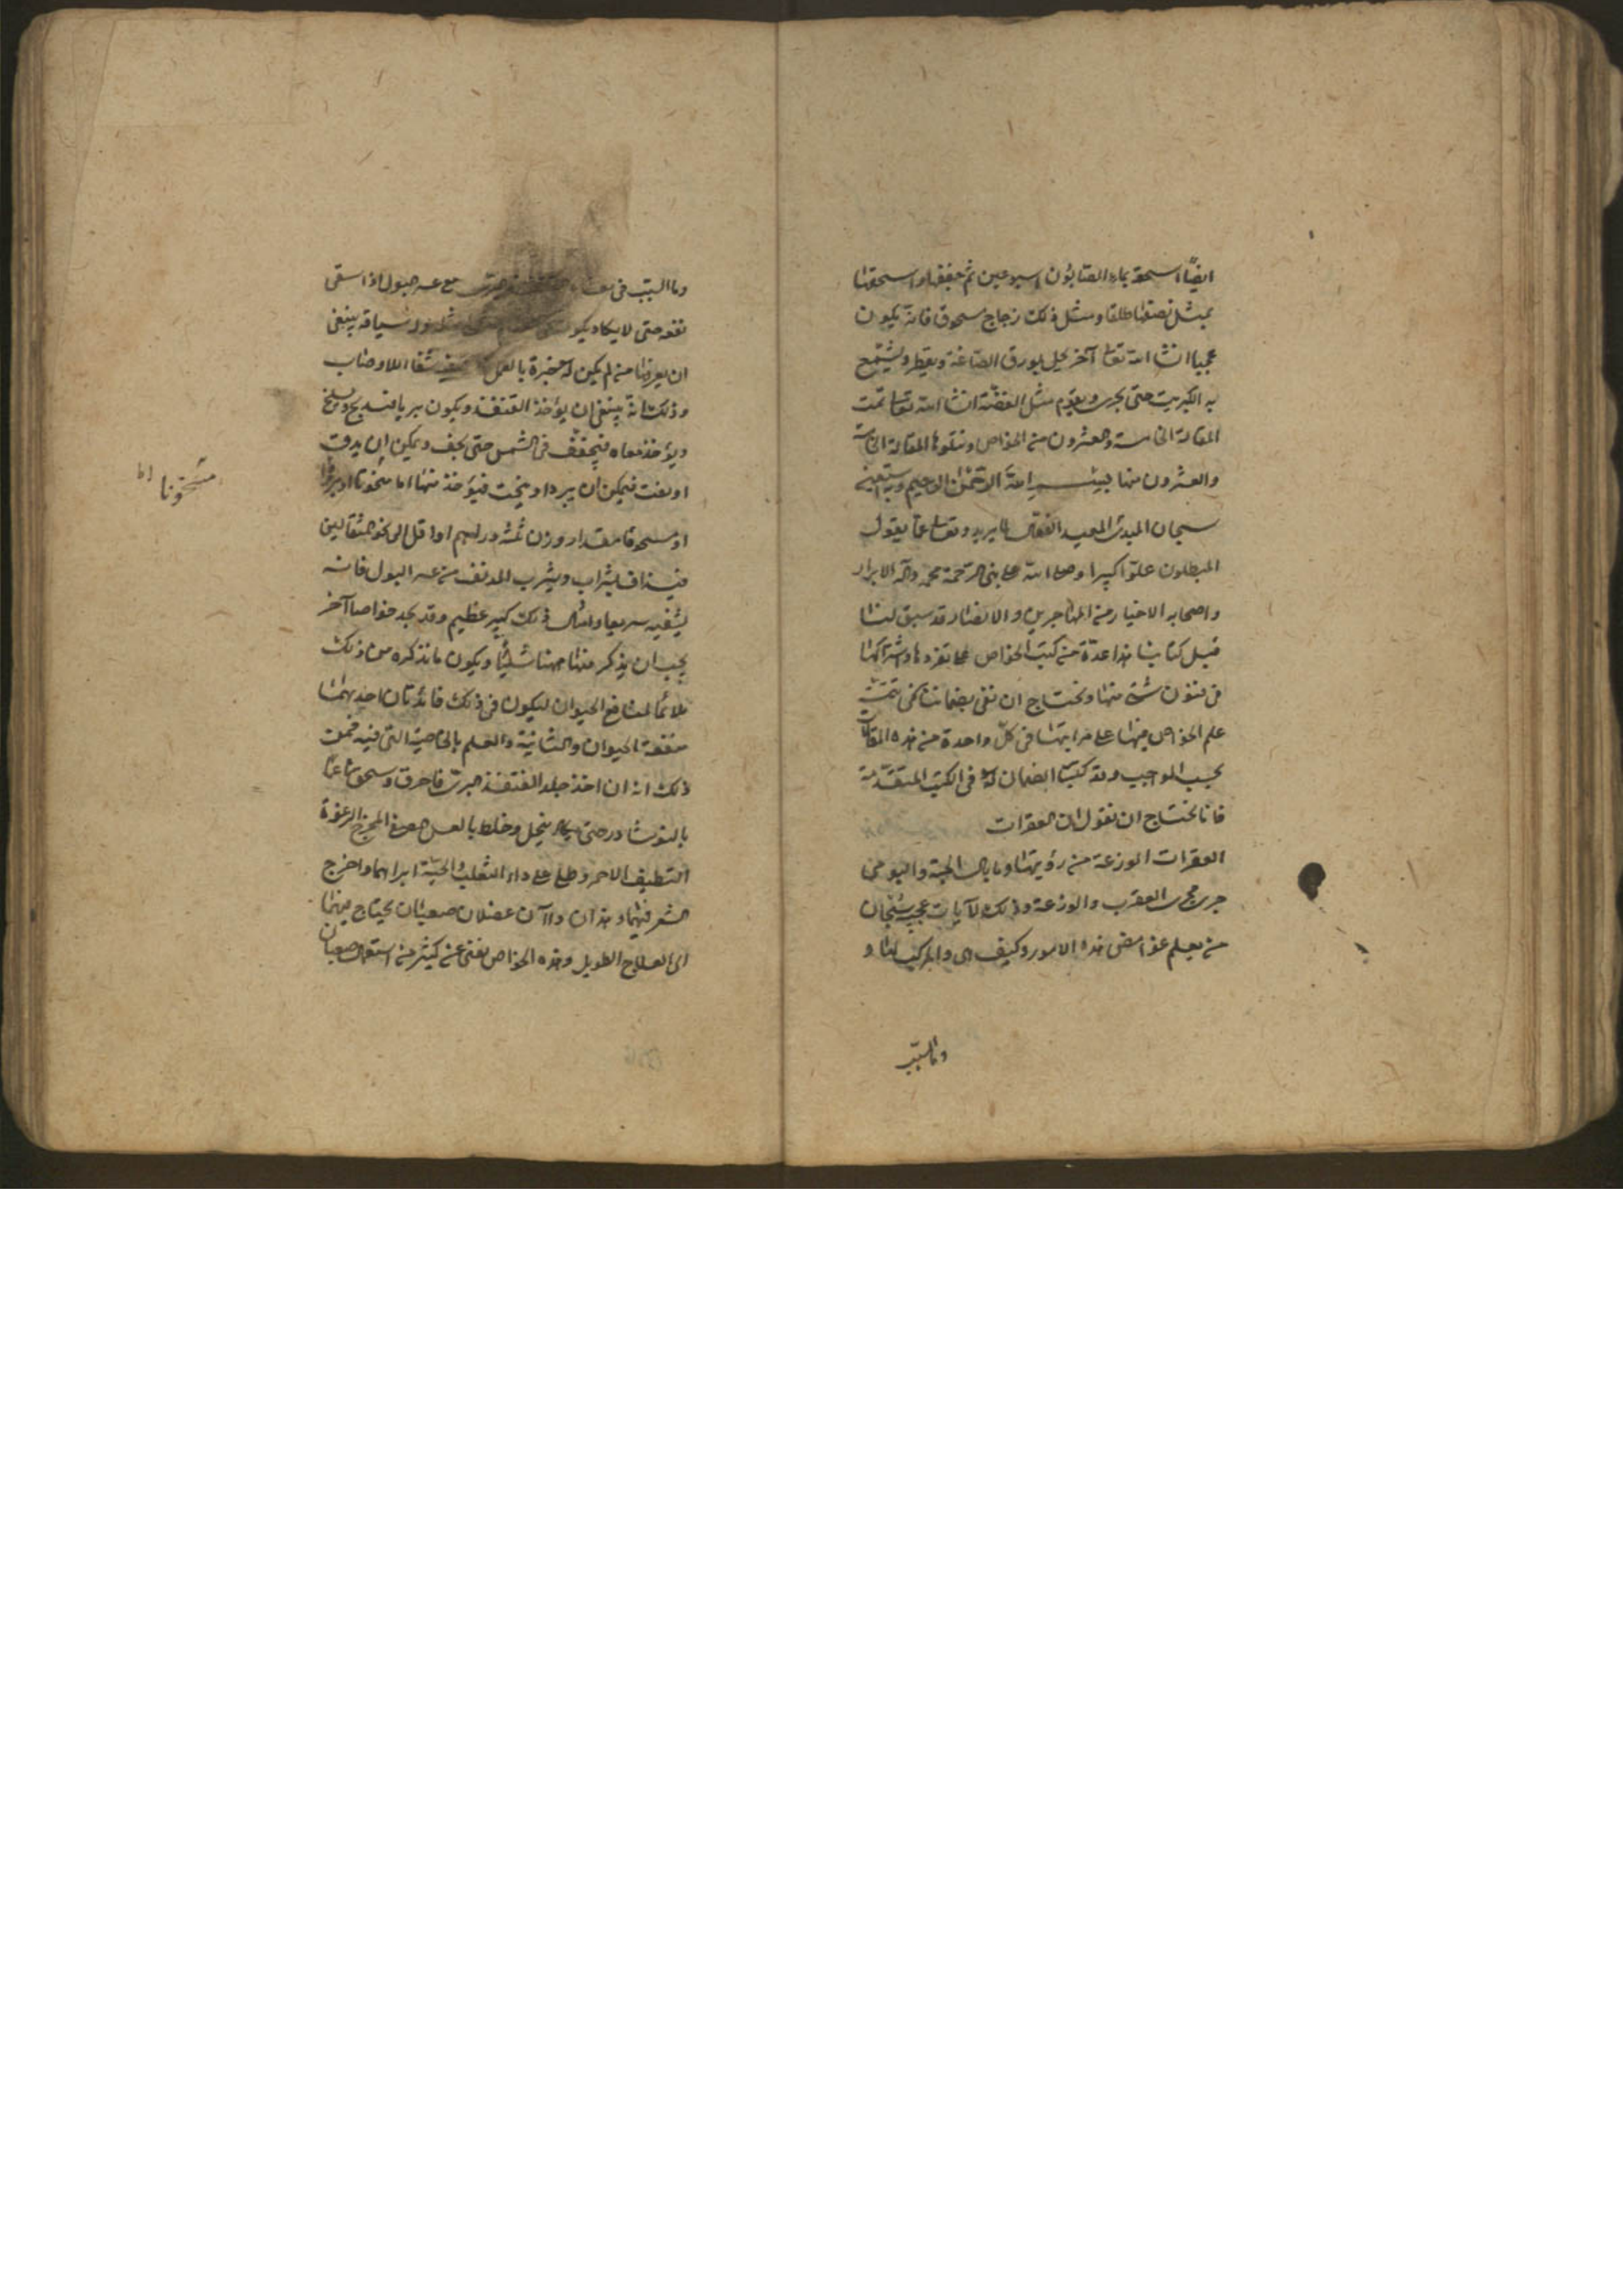 ايضًا اسحقه بماء الصابون اسبوعين ثم جففها واسحقها
بمثل نصفها طلقا ومثل ذلك زجاج مسحوق فانه يكون
عجيبا انشا الله تعا آخر يحل بورق الصاغة ويقطر ويشمع
به الكبريت حتى يجرى ويقوم مثل الفضة انشا الله تعا تمت
المقالة الخامسة والعشرون من الخواص ونتلوها المقالة
والعشرون منها بسم الله الرحمن الرحيم وبه نستعين
سبحان المبدئ المعيد الفعال لما يريد وتعا عما يقول
المبطلون علوّا كبيرا وصلى الله على نبى الرحمة محمد وآله الابرار
واصحابه الاخيار من المهاجرين والانصار قد سبق لنا
قبل كتابنا هذا عدة من كتب الخواص على تفردها واشتراكها
فى فنون شتى منها ونحتاج ان نفى بضماننا فى
علم الخواص منها على مراتبها فى كل واحدة من هذه المقالات
بحسب الواجب وقد كتبنا الضمان له فى الكتب المتقدمة
فانا نحتاج ان نقول ان العقرات
العقرات الوزغة من رؤيتها وما بال الحية والبوم
جرى مجرى العقرب والوزغة وذلك لآيات عجيبة سبحان
من يعلم غوامض هذه الامور وكيف هى وابتركيب لها و
وما السبب
وما السبب فى مع عسر البول اذا سقى
نفعه حتى لا يكاد يكون سياقه ينبغى
ان يعرفها من لم يكن له خبرة بالعمل شفا الاوصاب
وذلك انه ينبغى ان يؤخذ القنفذ ويكون بريا فيذبح ويسلخ
ويؤخذ معاه فيجفف فى الشمس حتى يجف ويمكن ان يدق
او يفت فيمكن ان يبرد او ينحت فيؤخذ منها اما منحوتا او
او مسحوقا مقدار وزن ثلثة دراهم او اقل الى نحو المثقالين
فيذاف بشراب ويشرب المدنف من عسر البول فانه
يشفيه سريعا وامثال ذلك كبير عظيم وقد نجد خواصا آخر
يجب ان يذكر منها ههنا شيئا ويكون ما نذكره من ذلك
ملائما لمنافع الحيوان ليكون فى ذلك فائدتان احديهما
منفعة الحيوان والثانية والعلم بالخاصية التى فيه فمن
ذلك انه ان اخذ جلد القنفذ البرى فاحرق وسحق ناعما
بالنوشادر حتى ينحل وخلط بالعسل المصفى المخرج الرغوة
النظيف الاحمر وطلى على داء الثعلب والحية ابراهما واخرج
الشعر فيهما وهذان داآن عضلان صعبان يحتاج فيهما
الى العلاج الطويل وهذه الخواص تغنى عن كثير من استعمال
منحوتا